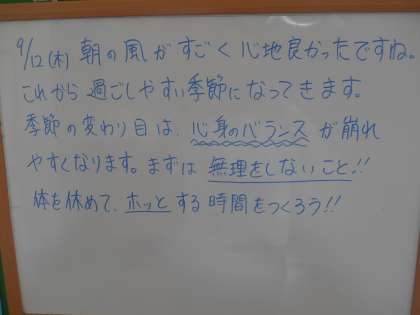 9/12(木) 朝の風がすごく心地良かったですね。
これから過ごしやすい季節になってきます。
季節の変わり目は、心身のバランスが崩れ
やすくなります。まずは無理をしないこと!!
体を休めて、ホッとする時間をつくろう!!